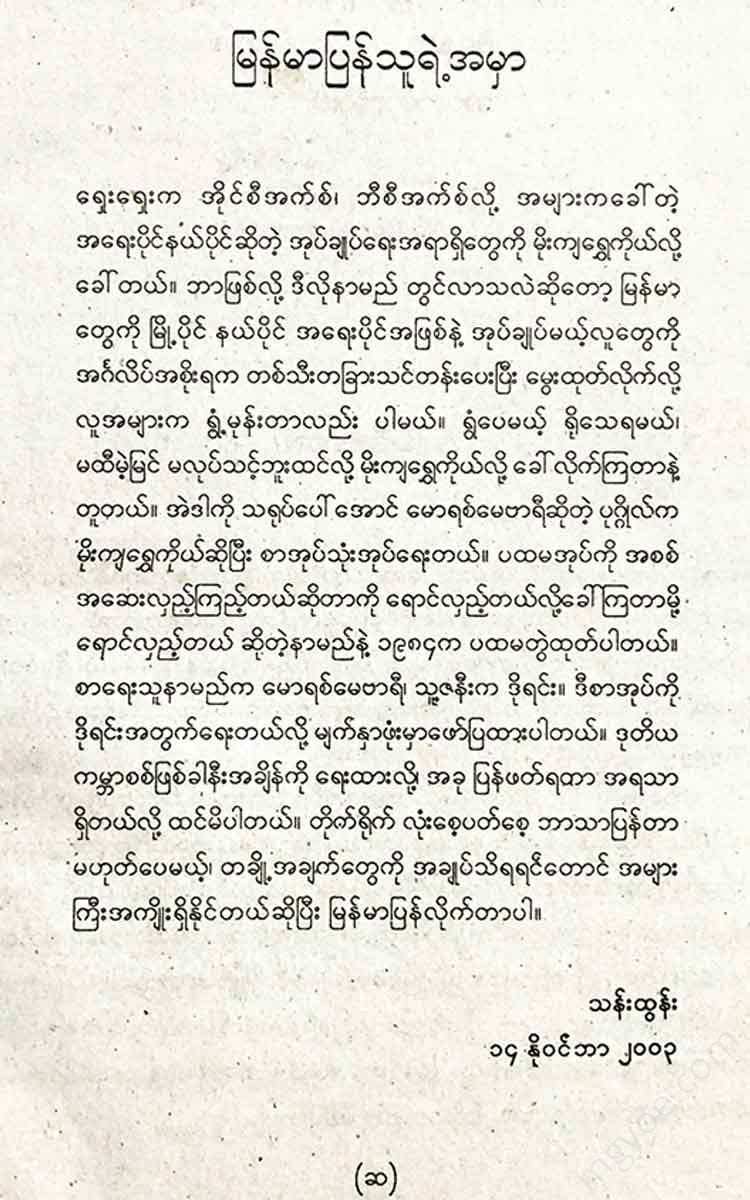 မြန်မာပြန်သူရဲ့အမှာ
ရှေးရှေးက အိုင်စီအက်စ်၊ ဘီစီအက်စ်လို့ အများကခေါ်တဲ့
အရေးပိုင်နယ်ပိုင်ဆိုတဲ့ အုပ်ချုပ်ရေးအရာရှိတွေကို မိုးကျရွှေကိုယ်လို့
ခေါ်တယ်။ ဘာဖြစ်လို့ ဒီလိုနာမည် တွင်လာသလဲဆိုတော့ မြန်မာ
တွေကို မြို့ပိုင် နယ်ပိုင် အရေးပိုင်အဖြစ်နဲ့ အုပ်ချုပ်မယ့်လူတွေကို
အင်္ဂလိပ်အစိုးရက တစ်သီးတခြားသင်တန်းပေးပြီး မွေးထုတ်လိုက်လို့
လူအများက ရွံ့မုန်းတာလည်း ပါမယ်။ ရွံပေမယ့် ရိုသေရမယ်၊
မထီမဲ့မြင် မလုပ်သင့်ဘူးထင်လို့ မိုးကျရွှေကိုယ်လို့ ခေါ်လိုက်ကြတာနဲ့
တူတယ်။ အဲဒါကို သရုပ်ပေါ်အောင် မောရစ်မေဗာရီဆိုတဲ့ ပုဂ္ဂိုလ်က
မိုးကျရွှေကိုယ်ဆိုပြီး စာအုပ်သုံးအုပ်ရေးတယ်။ ပထမအုပ်ကို အစစ်
အဆေးလှည့်ကြည့်တယ်ဆိုတာကို ရောင်လှည့်တယ်လို့ခေါ်ကြတာမို့
ရောင်လှည့်တယ် ဆိုတဲ့နာမည်နဲ့ ၁၉၈၄က ပထမတွဲထုတ်ပါတယ်။
စာရေးသူနာမည်က မောရစ်မေဗာရီ၊ သူ့ဇနီးက ဒိုရင်း။ ဒီစာအုပ်ကို
ဒိုရင်းအတွက်ရေးတယ်လို့ မျက်နှာဖုံးမှာဖော်ပြထားပါတယ်။ ဒုတိယ
ကမ္ဘာစစ်ဖြစ်ခါနီးအချိန်ကို ရေးထားလို့၊ အခု ပြန်ဖတ်ရတာ အရသာ
ရှိတယ်လို့ ထင်မိပါတယ်။ တိုက်ရိုက် လုံးစေ့ပတ်စေ့ ဘာသာပြန်တာ
မဟုတ်ပေမယ့်၊ တချို့အချက်တွေကို အချုပ်သိရရင်တောင် အများ
ကြီးအကျိုးရှိနိုင်တယ်ဆိုပြီး မြန်မာပြန်လိုက်တာပါ။
သန်းထွန်း
၁၄ နိုဝင်ဘာ ၂၀၀၃
(ဆ)
mgyoe.com